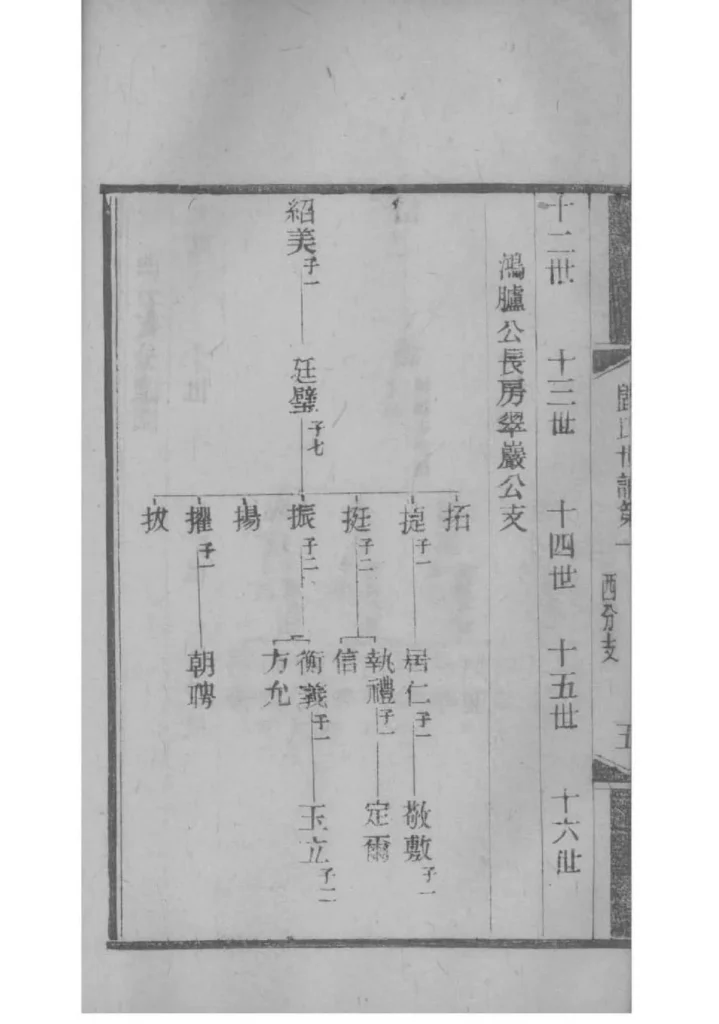 西分支
五
十二世 十三世 十四世 十五世 十六世
鴻臚公長房翠巖公支
紹美 子一
廷璧 子七
拓
提 子一
挺 子二
振 子二
揚
擢 子一
拔
居仁 子一
執禮 子一
信
衡義 子一
方允
朝聘
敬敷 子一
定爾
玉立 子二